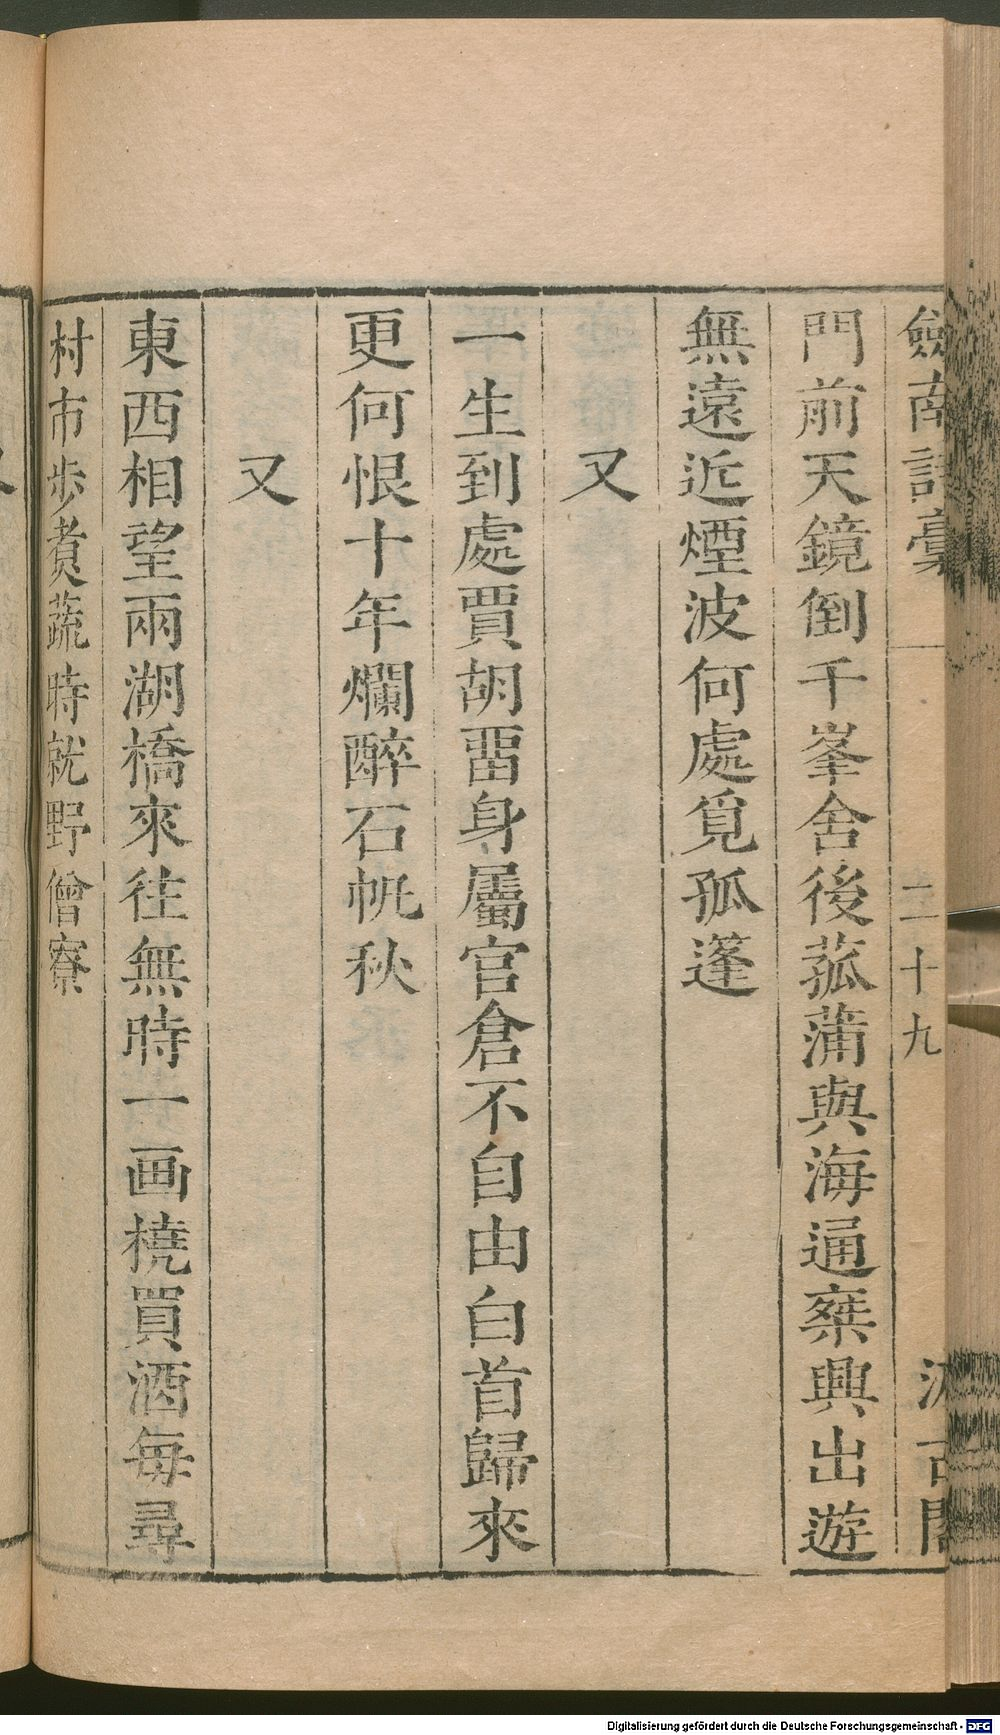 劒南詩藁
二十九
汲古閣
門前天鏡倒千峯舍後菰蒲與海通椉興出遊
無遠近煙波何處覓孤蓬
又
一生到處賈胡畱身屬官倉不自由白首歸來
更何恨十年爛醉石帆秋
又
東西相望兩湖橋來往無時一画橈買酒每尋
村市步煑蔬時就野僧寮
Digitalisierung gefördert durch die Deutsche Forschungsgemeinschaft - DFG